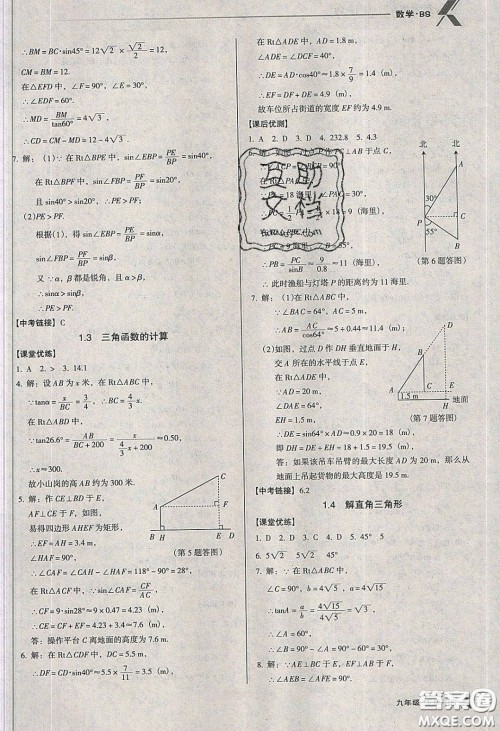 数学·BS
∴BM=BC·sin45°=12√2×√2/2=12,
CM=BM=12.
在△EFD中，∠F=90°，∠E=30°，
∴∠EDF=60°.
∴MD=BM/tan60°=4√3.
∴CD=CM-MD=12-4√3.
6. 解：(1)∵在Rt△BPE中，sin∠EBP=PE/BP=sin40°，
在Rt△BPF中，sin∠FBP=PF/BP=sin20°，
且sin40°>sin20°，∴PE>PF;
(2)PE>PF.
根据(1)，得sin∠EBP=PE/BP=sinα，
sin∠FBP=PF/BP=sinβ，
又∵α，β都是锐角，且α>β，
∴sinα>sinβ.
∴PE>PF.
【中考链接】C
1.3 三角函数的计算
【课堂优练】
1. A 2. > 3. 14.1
4. 解：设AB为x米，在Rt△ABC中，
∵tanα=x/BC=3/4，∴BC=4/3x.
在Rt△ABD中，
∵tan26.6°=AB/(BC+200)=x/(4/3x+200)≈0.50，
∴x≈300.
故小山岗的高AB约为300米.
5. 解：作CE⊥BD于E，
AF⊥CE于F，如图
易得四边形AHEF为矩形，
∴EF=AH=3.4 m，
∠HAF=90°，
∴∠CAF=∠CAH-∠HAF=118°-90°=28°.
在Rt△ACF中，∵sin∠CAF=CF/AC，
∴CF=9·sin28°≈9×0.47=4.23 (m)，
∴CE=CF+EF=4.23+3.4≈7.6 (m)，
答：操作平台C离地面的高度为7.6 m.
6. 解：在Rt△CDF中，DC=5.5 m，
∴DF=CD·sin40°≈5.5×7/11=3.5 (m).
(第5题答图)
在Rt△ADE中，AD=1.8 m，
∴DE=AD·cos40°≈1.8×7/9=1.4 (m)，
∴EF=DE+DF=4.9 (m)，
故车位所占街道的宽度EF约为4.9 m.
【课后优测】
1. A 2. D 3. D 4. 232.8 5. 4.3
AB于点C，
(海里).
≈11 (海里)，
∴此时渔船与灯塔P的距离约为11海里.
(第6题答图)
7. 解：(1)在Rt△ABC中，
∵∠BAC=64°，AC=5 m，
∴AB=AC/cos64°≈5÷0.44≈11.4 (m);
(2)如图，过点D作DH垂直地面于H，
交A所在的水平线于点E，
在Rt△ADE中，
∵AD=20 m，
∠DAE=64°，
EH=1.5 m，
∴DE=sin64°×AD≈0.9×20≈18 (m)，
即DH=DE+EH=18+1.5=19.5 (m)，
答：如果该吊车吊臂的最大长度AD为20 m，那么从
地面上吊起货物的最大高度是19.5 m.
1.5 m
地面
(第7题答图)
【中考链接】6.2
1.4 解直角三角形
【课堂优练】
1. D 2. D 3. D 4. 45° 5
6. 5√2 5√2 45°
7. 解：在Rt△ABC中，
∠C=90°，b=4√5，a=4√15，
∴tanA=a/b=4√15/4√5=√3，
∴∠A=60°，
∴∠B=90°-∠A=90°-60°=30°.
8. 解：∵AE⊥BC于点E，
∴∠AEB=∠AEC=90°，
九年级
互助
文档
答案圈
MXQE.COM